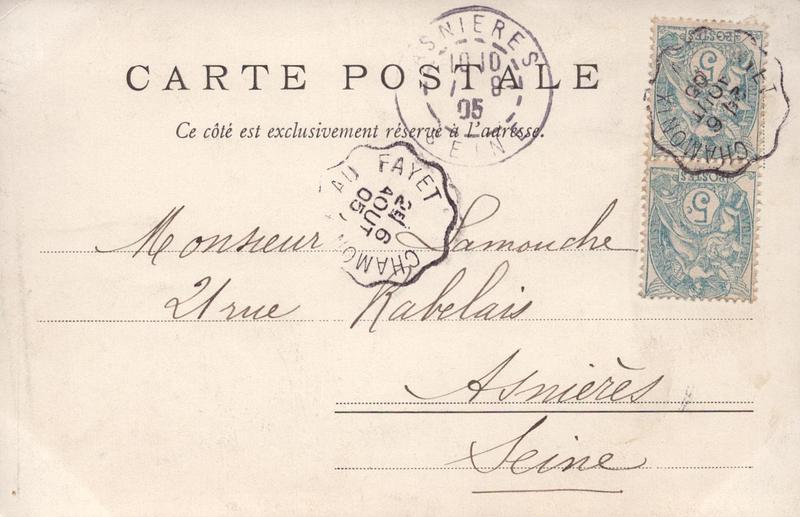 CARTE POSTALE
Ce côté est exclusivement réservé à l'adresse.
ASNIERES
10 10
7 8
05
SEINE
CHAMONIX AU FAYET
2E
6
AOUT
05
CHAMONIX
FAYET
6
AOUT
05
5
POSTES
5
POSTES
Monsieur Lamouche
21 rue Rabelais
Asnières
Seine